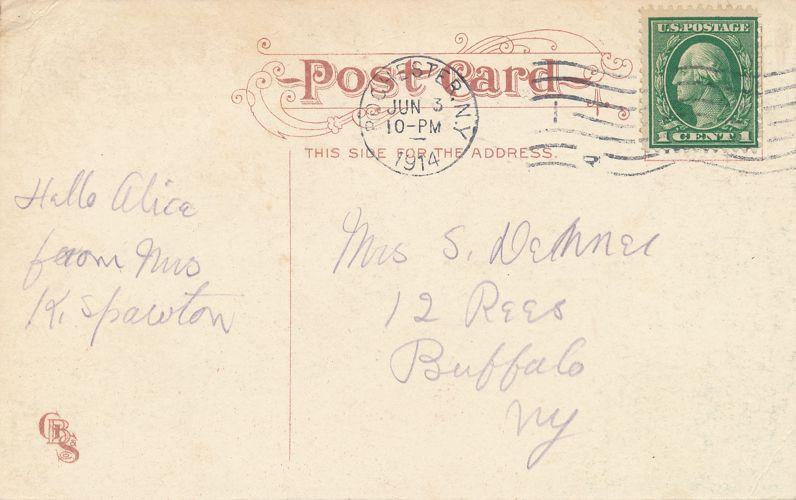 Post Card
ROCHESTER, N.Y.
JUN 3
10-PM
1914
U.S. POSTAGE
1 CENT 1
THIS SIDE FOR THE ADDRESS.
Hello Alice
from Mrs
K. Spawton
Mrs S. DeMnel
12 Rees
Buffalo
NY